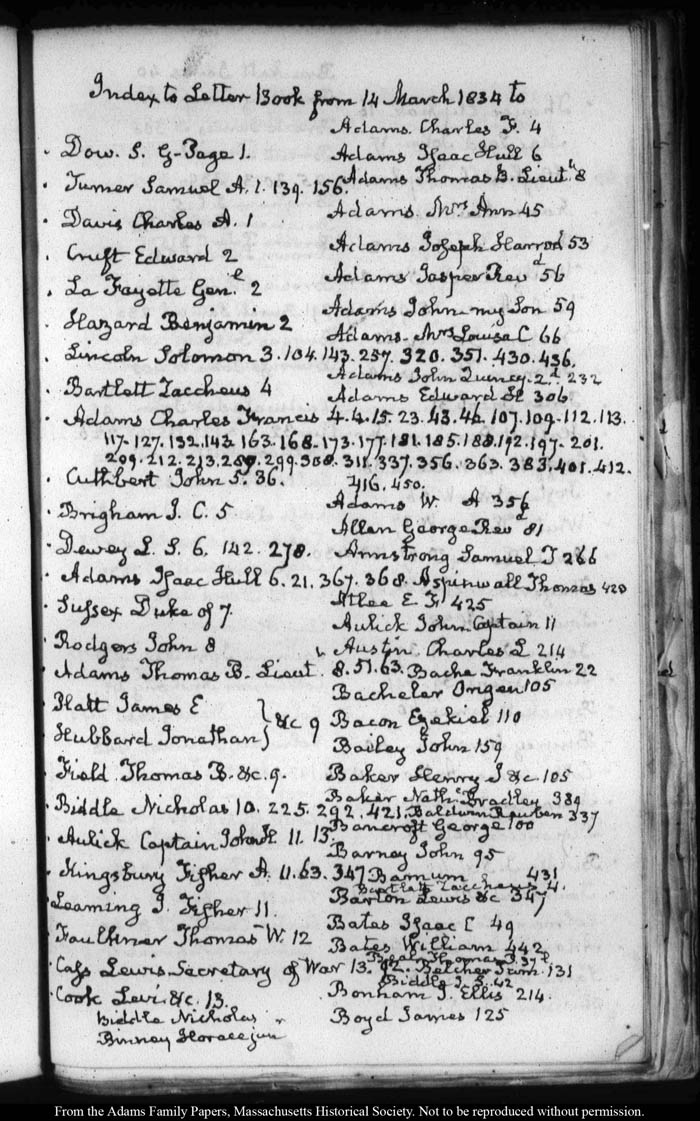 Index to Letter Book from 14 March 1834 to
Dow. S. G- Page 1.
Turner Samuel A. 1. 139. 156.
Davis Charles A. 1
Cruft Edward 2
La Fayette Genl. 2
Hazard Benjamin 2
Lincoln Solomon 3. 104. 143. 257. 320. 351. 430. 436.
Bartlett Zaccheus 4
Adams Charles Francis 4. 4. 15. 23. 43. 46. 107. 109. 112. 113.
117. 127. 132. 143. 163. 168. 173. 177. 181. 185. 188. 192. 197. 201.
209. 212. 213. 299. 308. 311. 337. 356. 363. 383. 401. 412.
416. 450.
Cuthbert John 5. 36.
Brigham J. C. 5
Dewey L. S. 6. 142. 278.
Adams Isaac Hull 6. 21. 367. 368.
Sussex Duke of 7
Rodgers John 8
Adams Thomas B. Lieut. 8. 51. 63.
Platt James E
Hubbard Jonathan } &c 9
Field Thomas B. &c. 9.
Biddle Nicholas 10. 225. 292. 421.
Aulick Captain John H. 11. 13.
Kingsbury Fisher A. 11. 63. 347
Leaming J. Fisher 11.
Faulkner Thomas W. 12
Cass Lewis Secretary of War 13. 92.
Cook Levi &c. 13.
Biddle Nicholas
Binney Horace jun
Adams. Charles F. 4
Adams Isaac Hull 6
Adams Thomas B. Lieut 8
Adams. Mrs Ann 45
Adams Joseph Harrod 53
Adams Jasper Revd 56
Adams John my Son 59
Adams. Mrs Louisa C 66
Adams John Quincy. 2d. 232
Adams Edward H 306
Adams W. A 356
Allen George Revd 81
Armstrong Samuel T 266
Aspinwall Thomas 420
Atlee E. F. 425
Aulick John Captain 11
Austin Charles L 214
Bache Franklin 22
Bacheler Origen 105
Bacon Ezekiel 110
Bailey John 159
Baker Henry J &c. 105
Baker Nathl Bradley 389
Baldwin Reuben 337
Bancroft George 100
Barney John 95
Barnum 431
Bartlett Zaccheus 4.
Barton Lewis &c 347
Bates Isaac C 49
Bates William 442
Belcher Sam. 131
Biddle 42
Bonham J. Ellis 214.
Boyd James 125
From the Adams Family Papers, Massachusetts Historical Society. Not to be reproduced without permission.